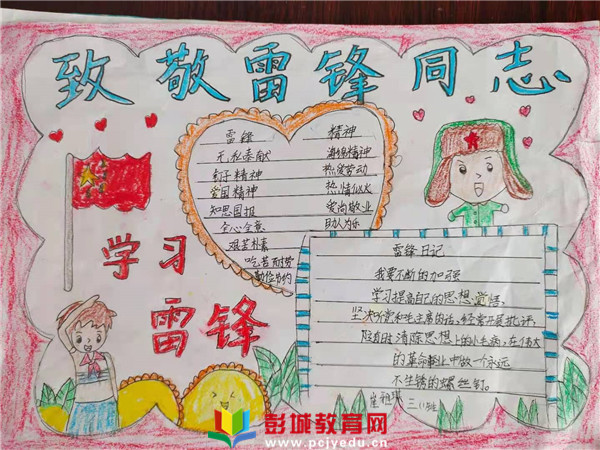 致敬雷锋同志
雷锋 精神
无私奉献 海绵精神
钉子精神 热爱劳动
爱国精神 热情似火
知恩图报 爱岗敬业
全心全意 助人为乐
艰苦朴素
吃苦耐劳
勤俭节约
学习
雷锋
雷锋日记
我要不断的加强
学习提高自己的思想觉悟,
坚决听党和毛主席的话,经常开展批评,
随时清除思想上的小毛病,在伟大
的革命事业中做一个永远
不生锈的螺丝钉。
三(1)班
彭城教育网
www.pcjyedu.cn